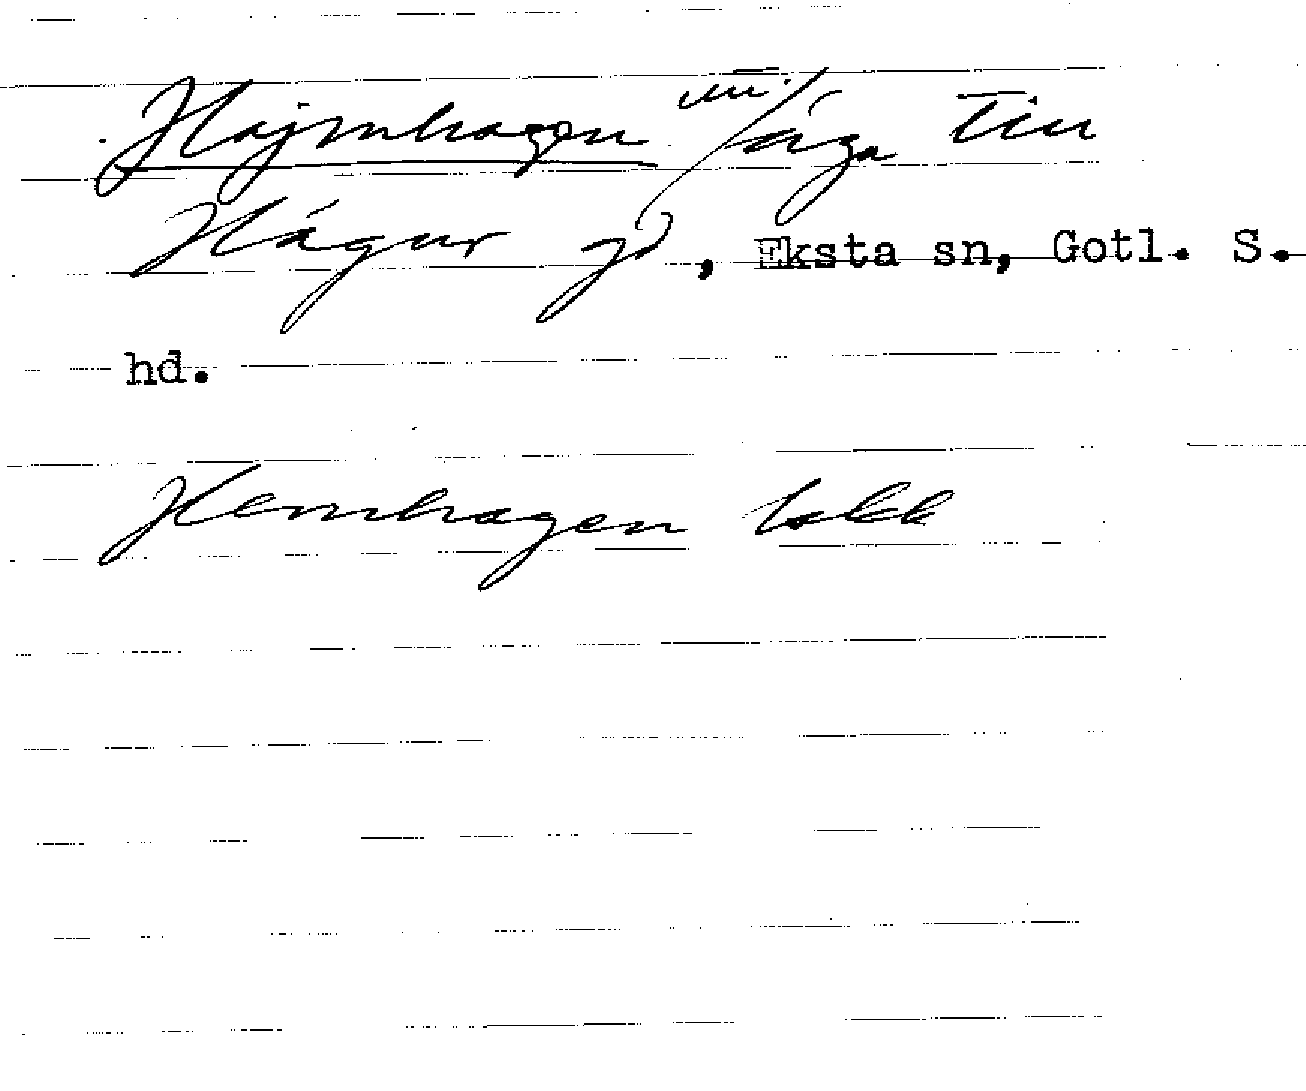 Hajmhagen äga till
Hägur gd, Eksta sn, Gotl. S.
hd.
Hemhagen bekk